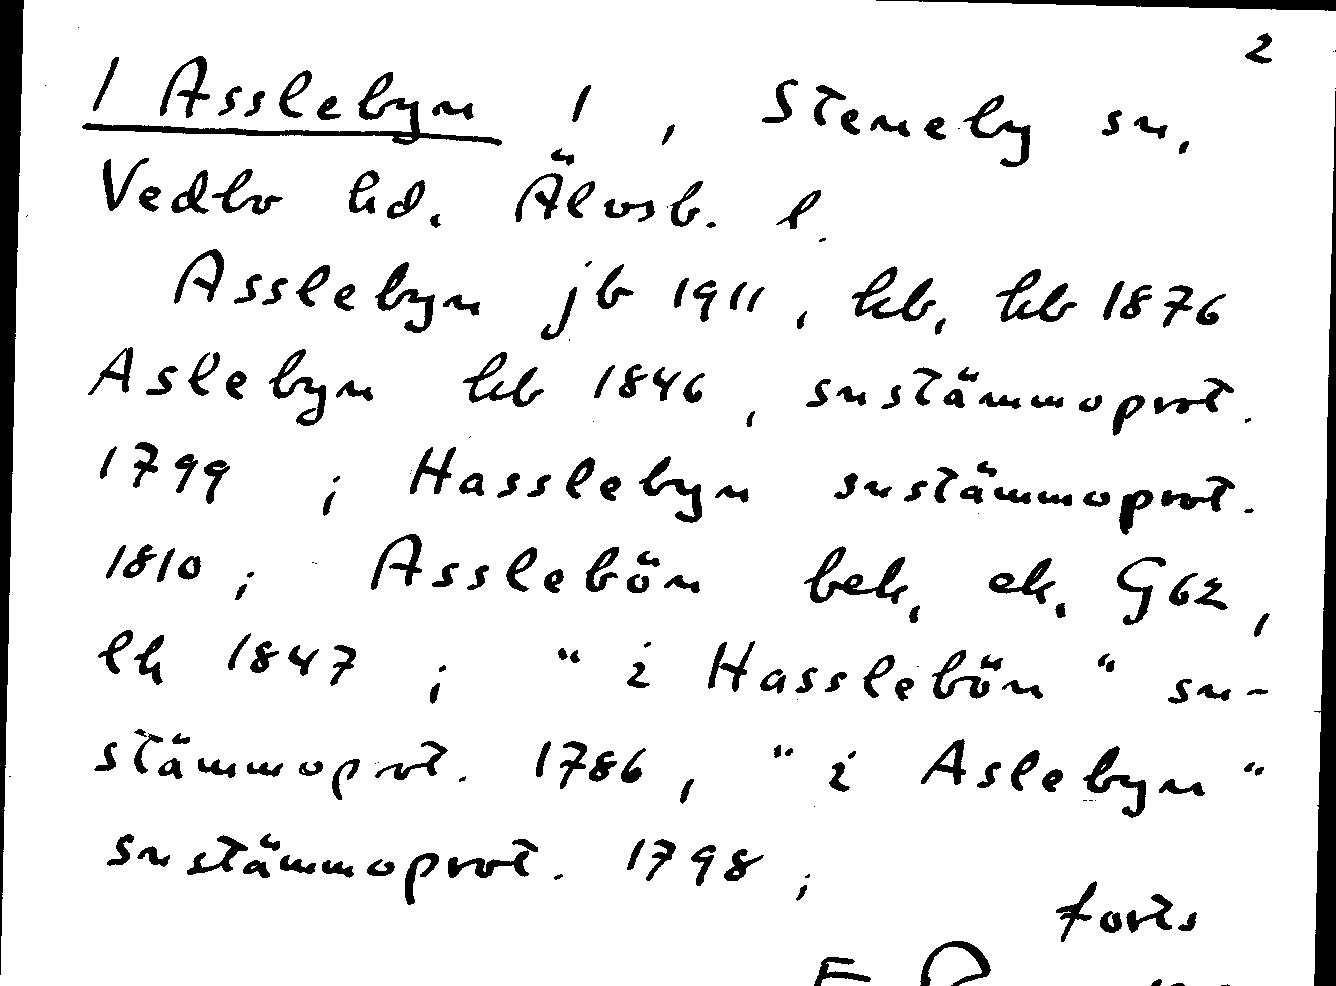 2
/ Asslebyn / , Steneby sn,
Vedbo hd. Älvsb. l.
Asslebyn jb 1911, kb, hb 1876
Aslebyn hb 1846, snstämmoprot.
1799 ; Hasslebyn snstämmoprot.
1810 ; Asslebön bek, ek, G62,
lk 1847 ; " i Hasslebön " sn-
stämmoprot. 1786, " i Aslebyn "
snstämmoprot. 1798 ;
forts